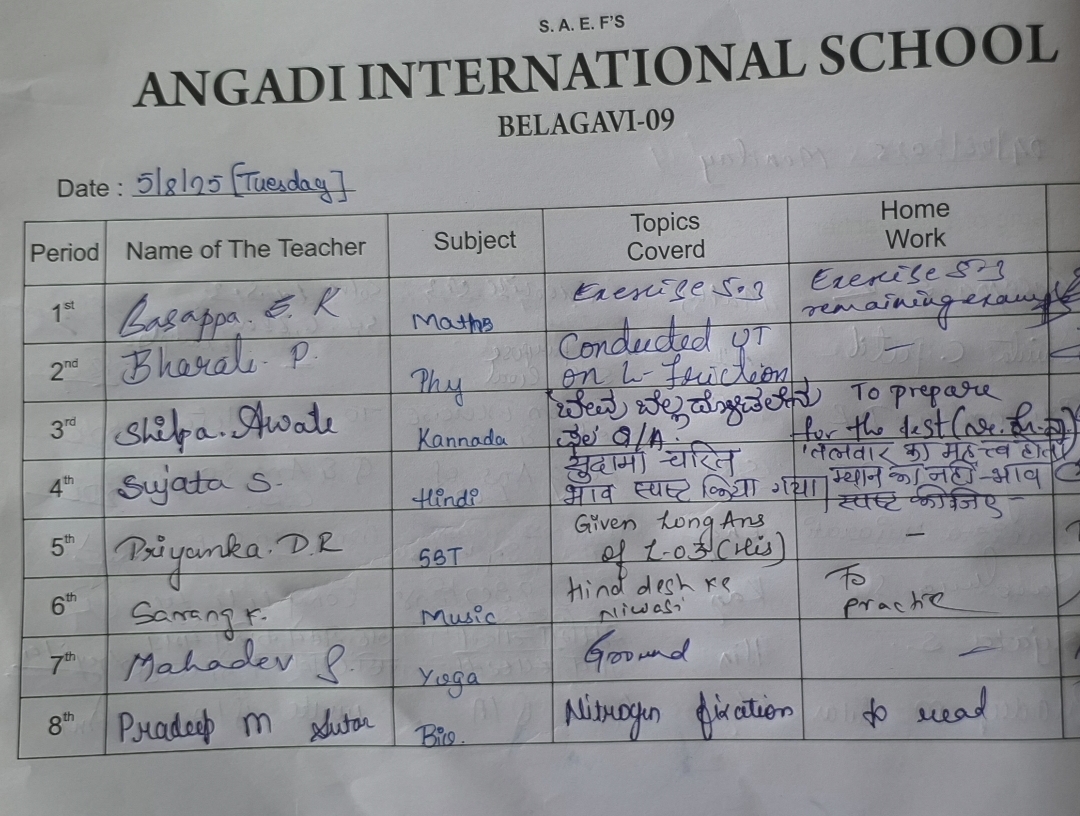 S. A. E. F'S
ANGADI INTERNATIONAL SCHOOL
BELAGAVI-09
Date : 5/8/25 [Tuesday]
Period Name of The Teacher Subject Topics Coverd Home Work
1st Basappa. E. K Maths Exercise 5.3 Exercise 5.3 remaining
2nd P. Phy Conducted UT on L- friction -
3rd Shilpa. Awate Kannada Q/A. To prepare for the test
4th Sujata S. Hindi सुदामा चरित भाव स्पष्ट किया गया तलवार का महत्त्व होता म्यान का नहीं - भाव स्पष्ट कीजिए -
5th Priyanka. D.R SST Given Long Ans of L-03 (His) -
6th Sarang K. Music Hind desh ke Niwasi To practie
7th Mahadev S. Yoga Ground -
8th Pradeep M Sutar Bio. Nitrogen fixation to read